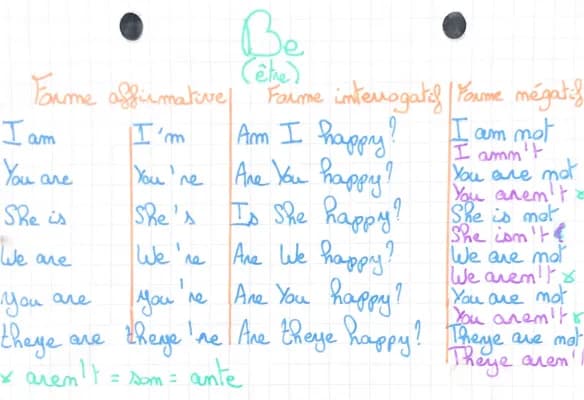 Be
(être)
Forme affirmative Forme interrogatif Forme négatif
I am I'm Am I happy? I am not
I amn't
You are You're Are You happy? You are not
You aren't x
She is She's Is She happy? She is not
She isn't
We are We're Are We happy? We are not
We aren't x
you are you're Are You happy? You are not
You aren't x
theye are theye're Are theye happy? Theye are not
Theye aren't
x aren't = som = ante